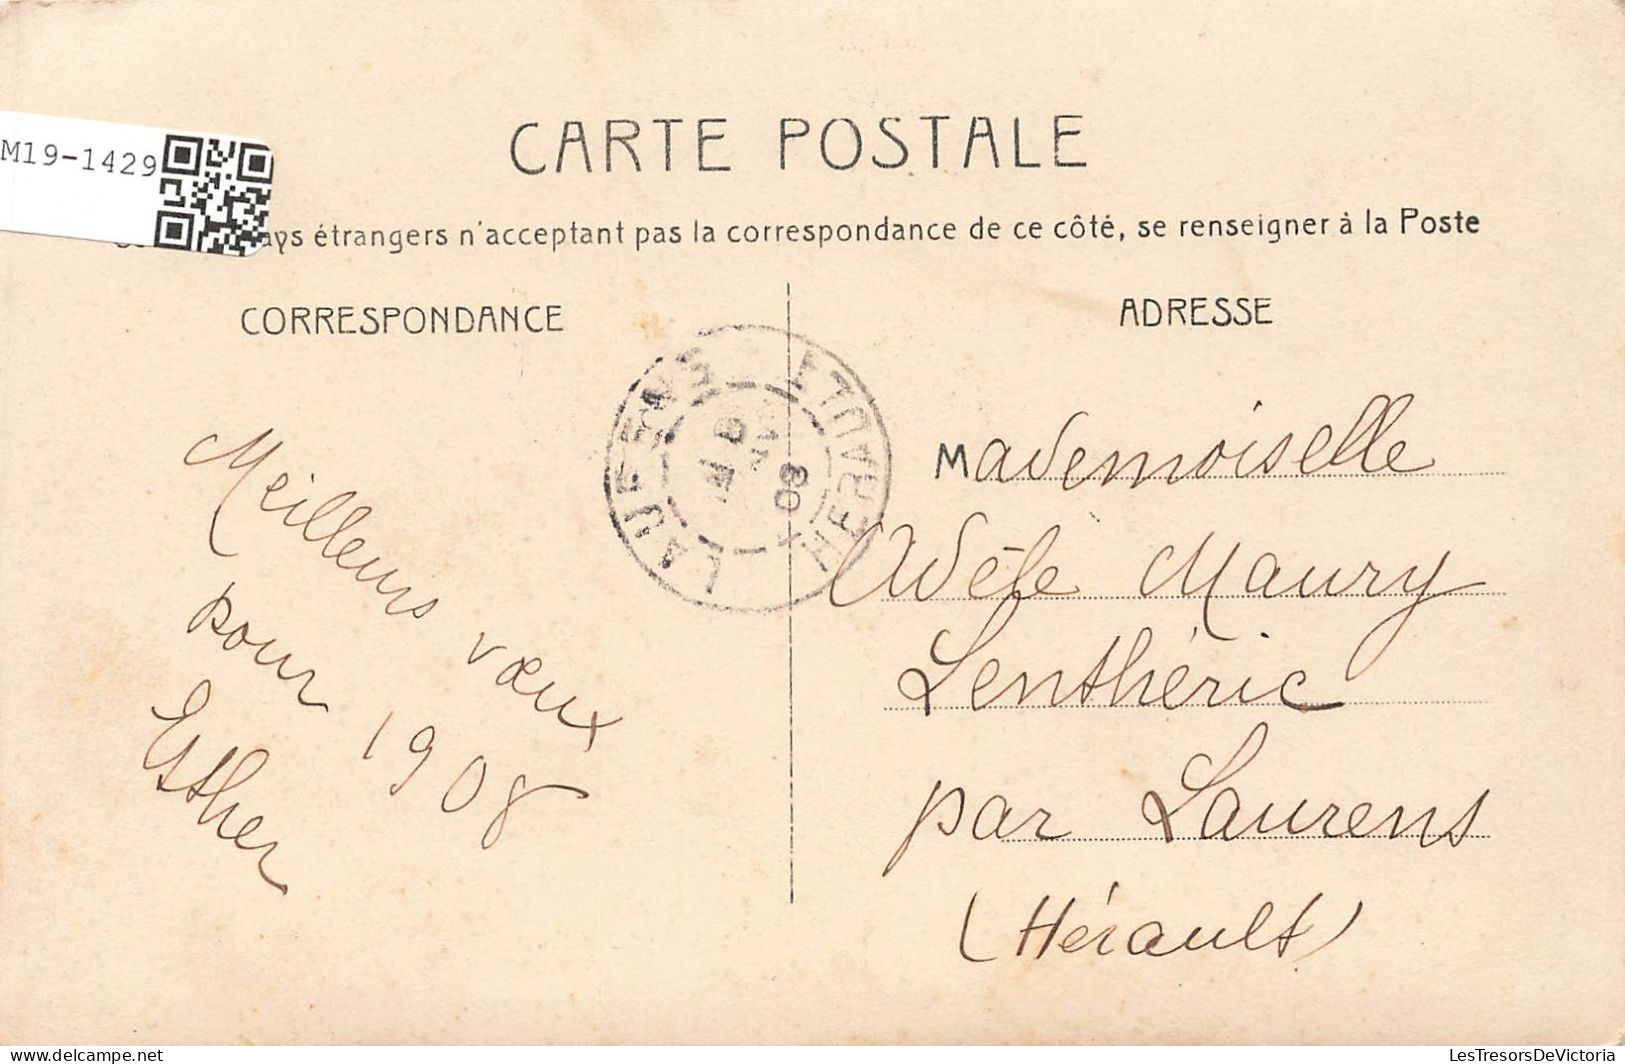 CARTE POSTALE
M19-1429
pays étrangers n'acceptant pas la correspondance de ce côté, se renseigner à la Poste
CORRESPONDANCE
ADRESSE
LAURENS
HERAULT
08
Meilleurs vœux
pour 1908
Esther
Mademoiselle
Adèle Maury
Lenthéric
par Laurens
(Hérault)
LesTresorsDeVictoria